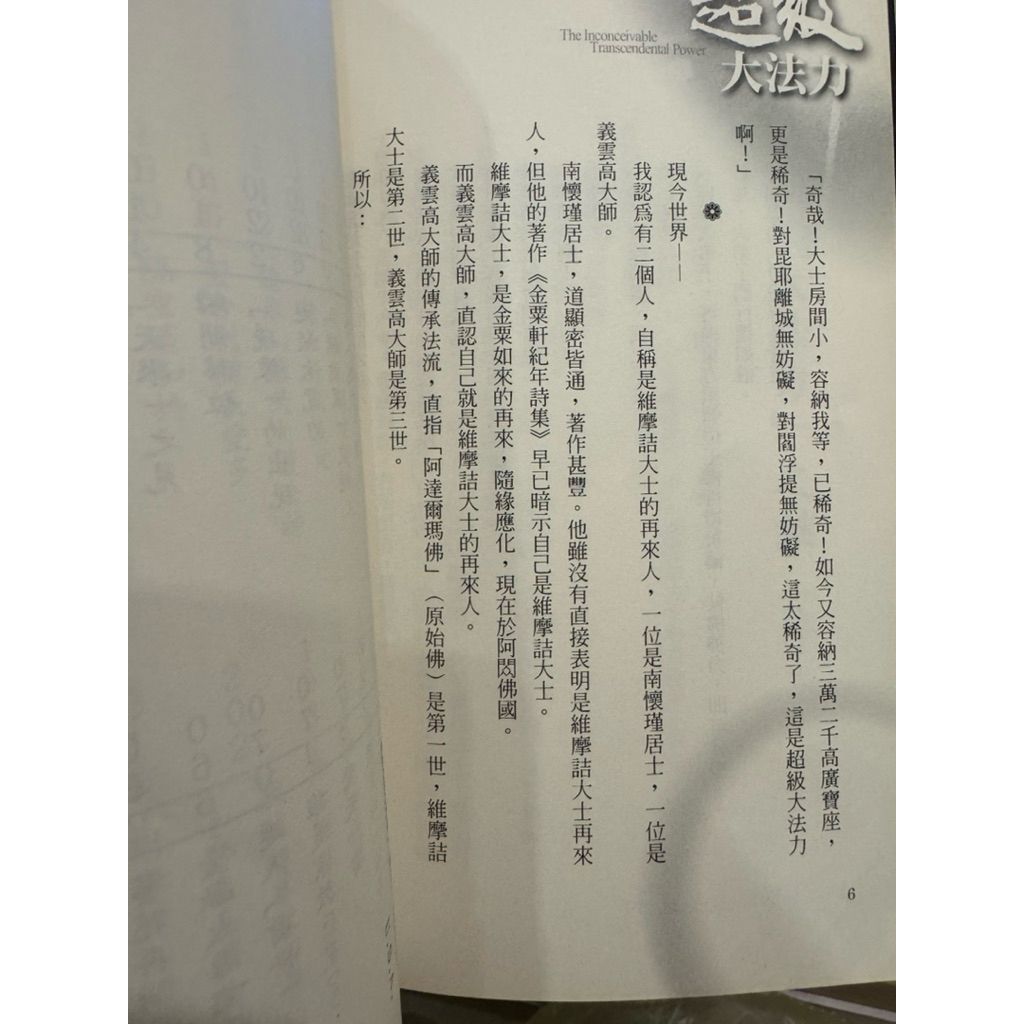 超級
大法力
The Inconceivable
Transcendental Power
「奇哉！大士房間小，容納我等，已稀奇！如今又容納三萬二千高廣寶座，
更是稀奇！對毘耶離城無妨礙，對閻浮提無妨礙，這太稀奇了，這是超級大法力
啊！」
現今世界——
我認爲有二個人，自稱是維摩詰大士的再來人，一位是南懷瑾居士，一位是
義雲高大師。
南懷瑾居士，道顯密皆通，著作甚豐。他雖沒有直接表明是維摩詰大士再來
人，但他的著作《金粟軒紀年詩集》早已暗示自己是維摩詰大士。
維摩詰大士，是金粟如來的再來，隨緣應化，現在於阿閦佛國。
而義雲高大師，直認自己就是維摩詰大士的再來人。
義雲高大師的傳承法流，直指「阿達爾瑪佛」（原始佛）是第一世，維摩詰
大士是第二世，義雲高大師是第三世。
所以：
6